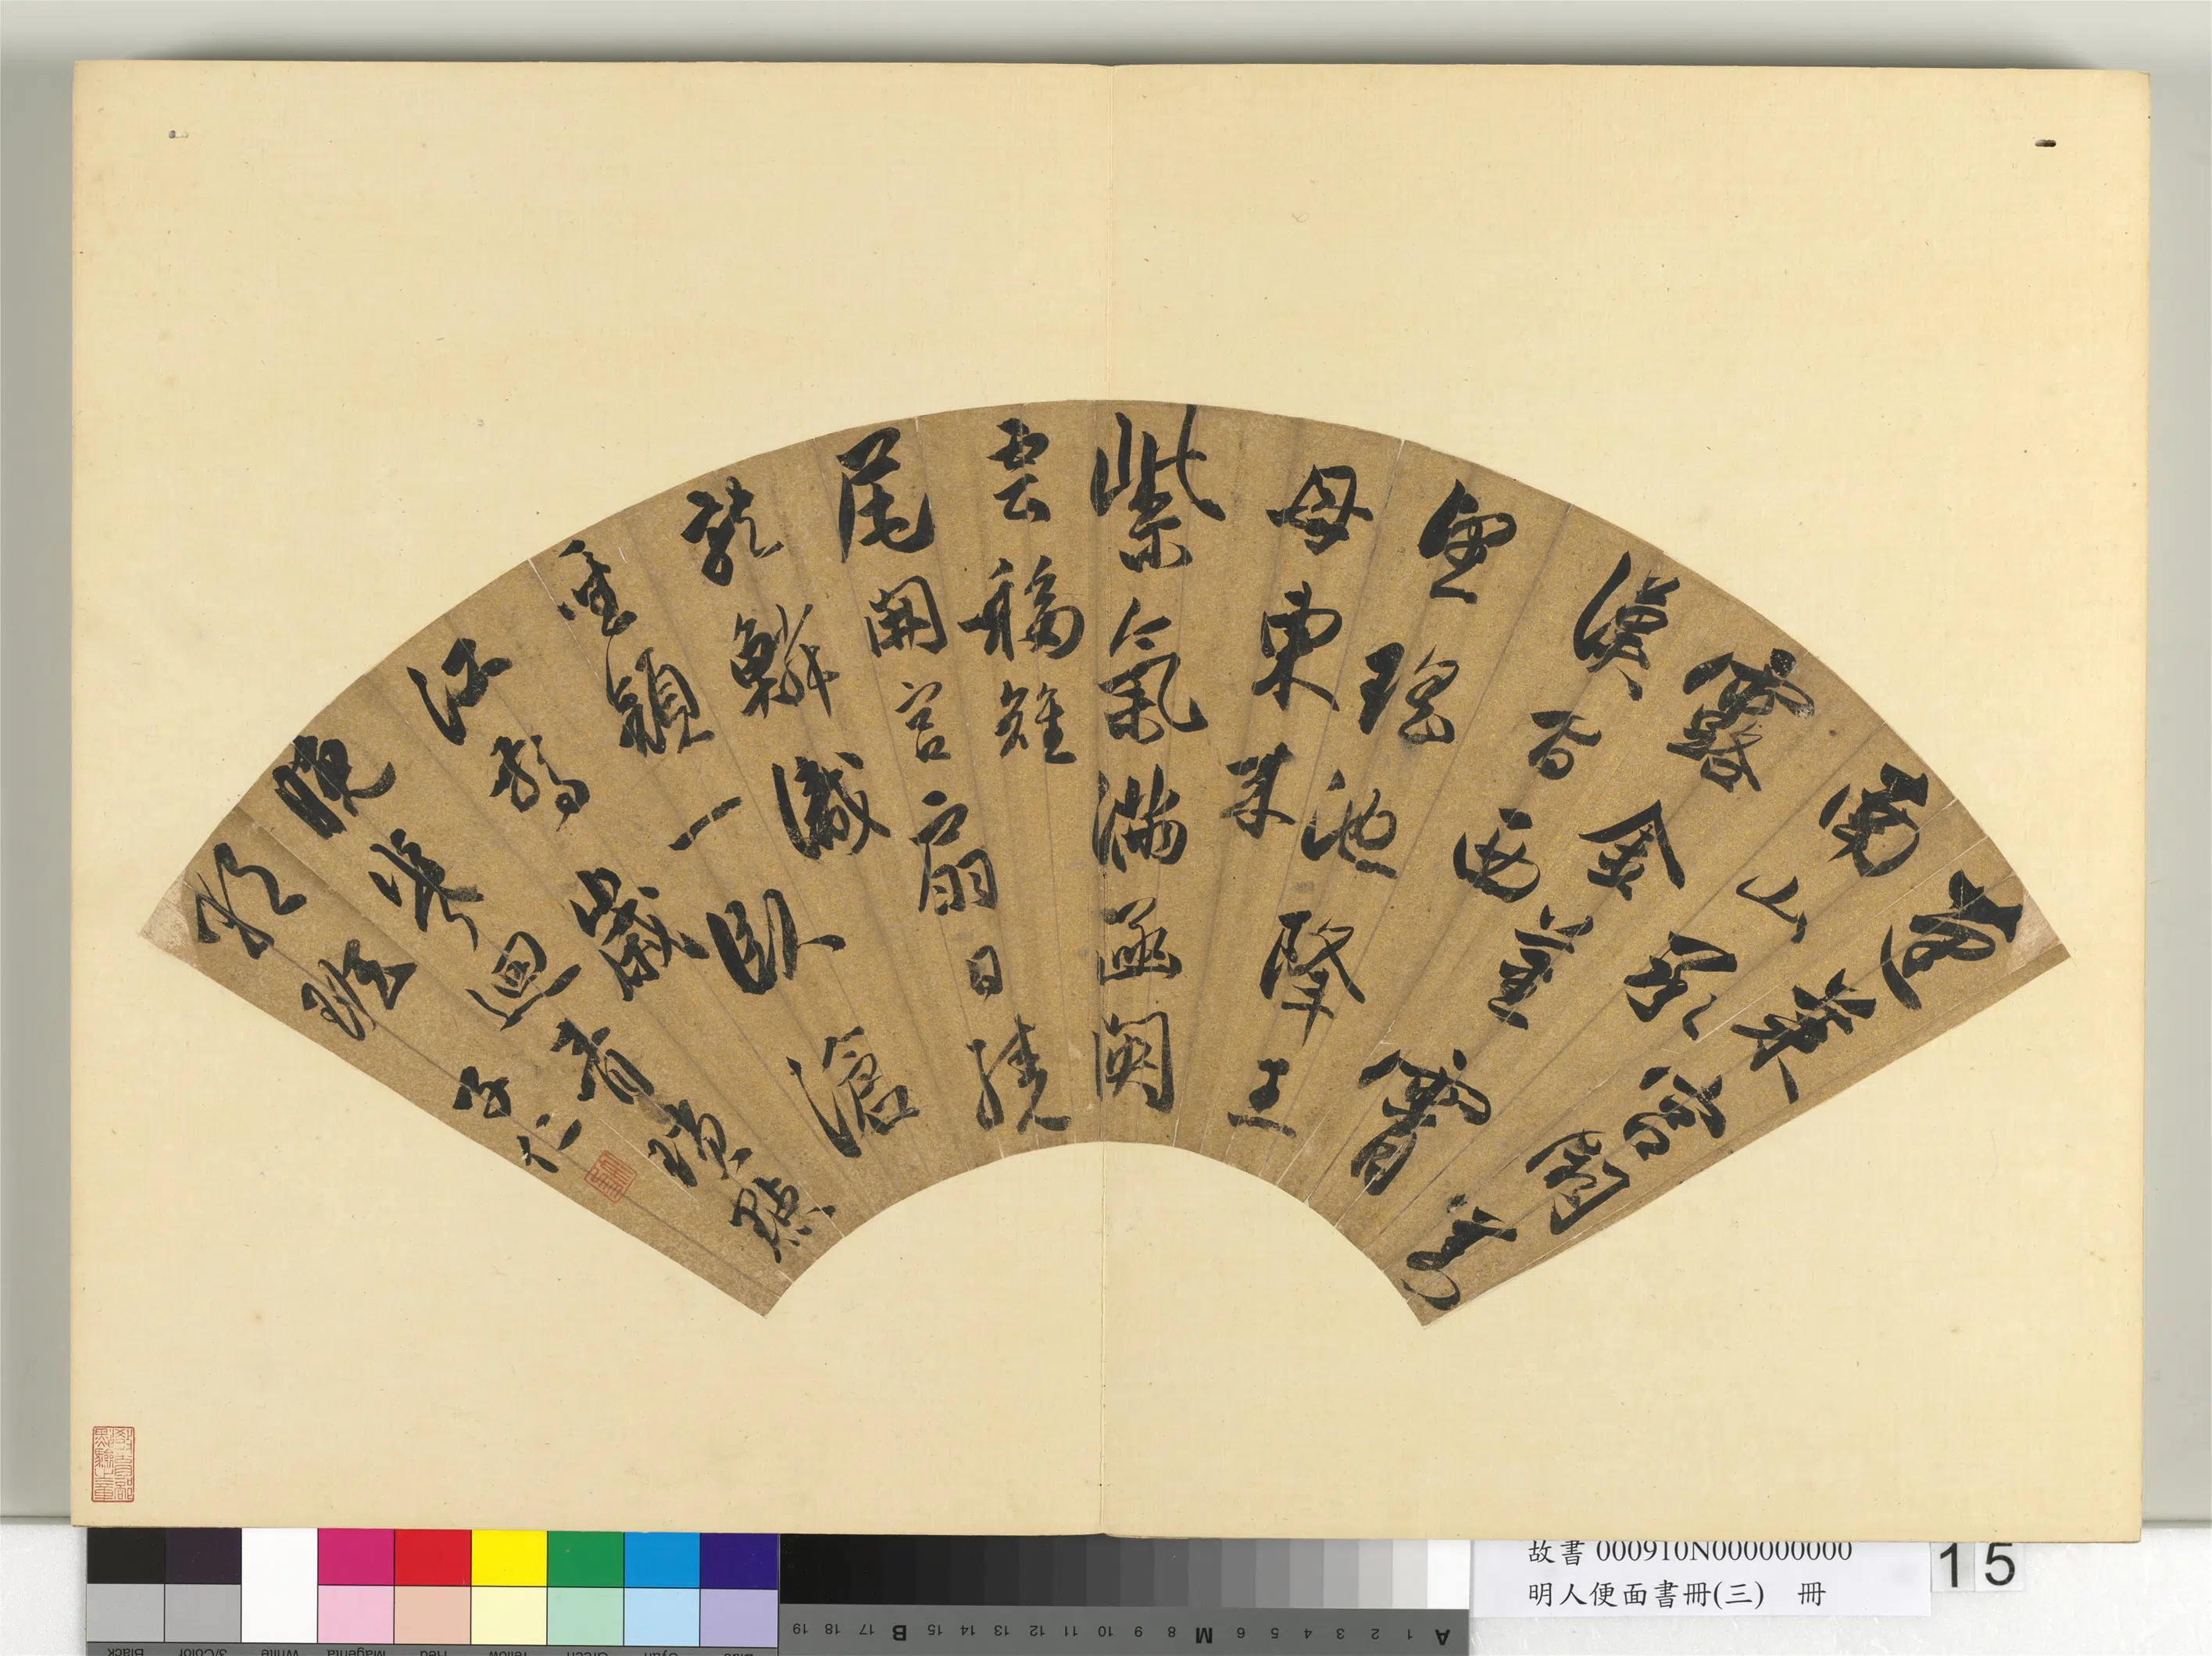 蓬萊宮闕對
南山承
露金莖霄
漢間西
望瑤池降王
母東來
紫氣滿函関
雲移雉
尾開宮扇日繞
龍鱗識
聖顏一臥滄
江驚歲
晚幾回青瑣點
朝班 子仁
故書 000910N000000000
明人便面書冊(三) 冊
15
A 1 2 3 4 5 6 M 8 9 10 11 12 13 14 15 B 17 18 19